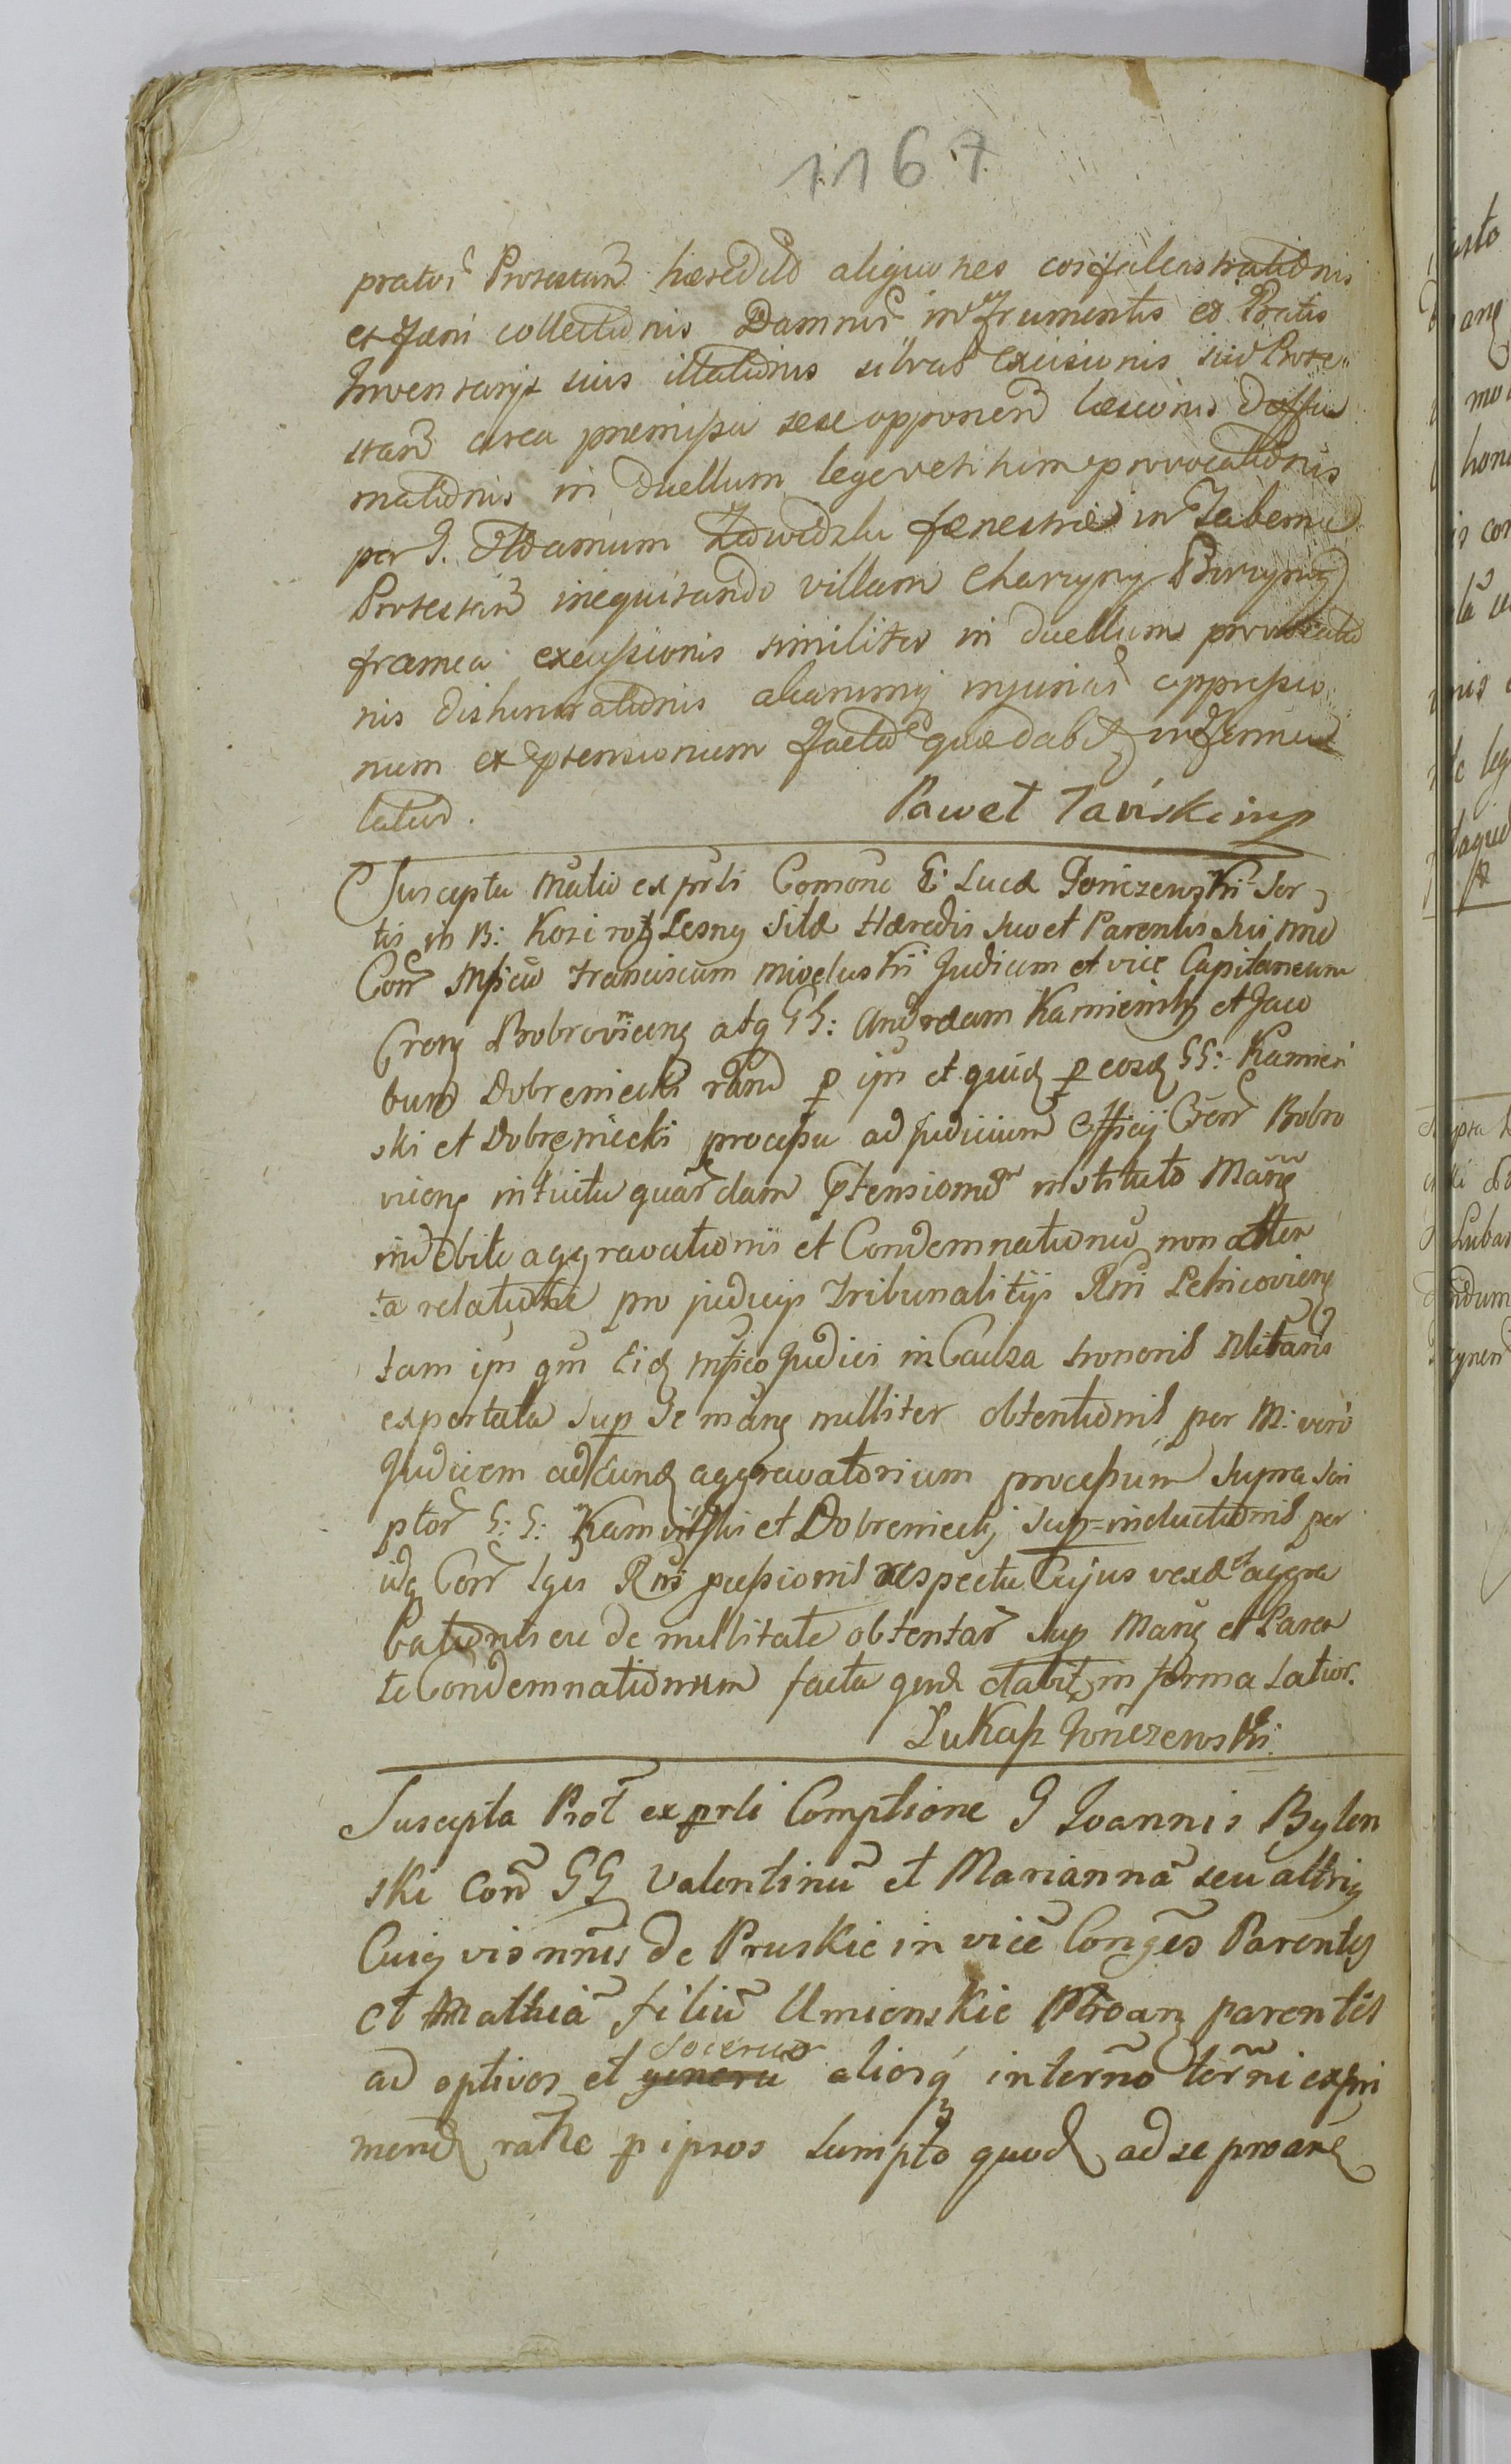 1167
prator Protestan haeredild aliquo hes confalcastrationis
et faeni collectionis Damnor in Frumentis et Pratis
Inventarys suis illationis silvar Excisionis sui Prote
stan circa praemissa sese opponend laesionis deffa
mationis in duellum lege vetitum provocationis
per G. Adamum fenestrae in Taberna
Protestan inequitando villam Charzyny
framea excussionis similiter in duellum provocatio
nis dishonorationis aliarumq injuriar oppressio
num et praetensionum facta quae dabitur in Forma
latiori.
Paweł Tański mp
Suscepta Matio ex prli Comone G: Lucae Gonczewski Sor
tis in B: Kozirog Lesny Sitae Haeredis Suo et Parentis Sui nne
Con Mficu Franciscum Mioduski Judicem et vice Capitaneum
Cren Bobrovnicen atq GG: Andream Kamienski et Jaco
bum Dobreniecki rand p ipn et quid p eosd GG: Kamien
ski et Dobreniecki processu ad judicium Officy Cren Bobro
vicen intuitu quardam Ptensionu instituto Mane
indebite aggravationis et Condemnationu non atten
ta relatione pro judicys Tribunalitys Rni Petricovien
tam ipn qm Eid Mfico Judici in Causa honoris Militaris
expertata Sup Se mane nulliter obtentionis per M: vero
Judicem ad Eund aggravatorium processum Supra Scri
ptor G: G: Kamieński et Dobreniecki Sup=inductionis per
idq Con Lges Rni passionis respectu Cujus vexae aggra
vationis ac de nullitate obtentar Sup Mane et Paren
te Condemnationum facta quae dabit in forma latior.
Łukasz Gończewski
Suscepta Prot ex prli Comptione G Joannis Bylen
ski Con GG Valentinu et Marianna seu altriq
Cuiq vis nnis de Pruskie in vice Conges Parentes
et Mathia filiu Umienskie Proan parentes
ad optivos et generu aliosq in termo terni expri
socerus
mend rahe p ipsos sumpto quod ad se proane